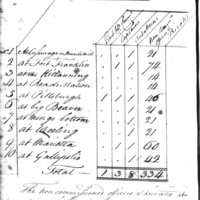 1 at Cussawaga or Meads mill 21
2 at Fort Franklin 1 1 74
3 at Kittanning 14
4 at Reads Station 14
5 at Pittsburgh 1 1 46
6 at big Beaver 1 21
7 at mingo bottom 1 21
8 at Wheeling 1 21
9 at Marietta 1 60
10 at Gallipolis 1 42
Total 1 3 8 334
The noncommissioned officers & privates